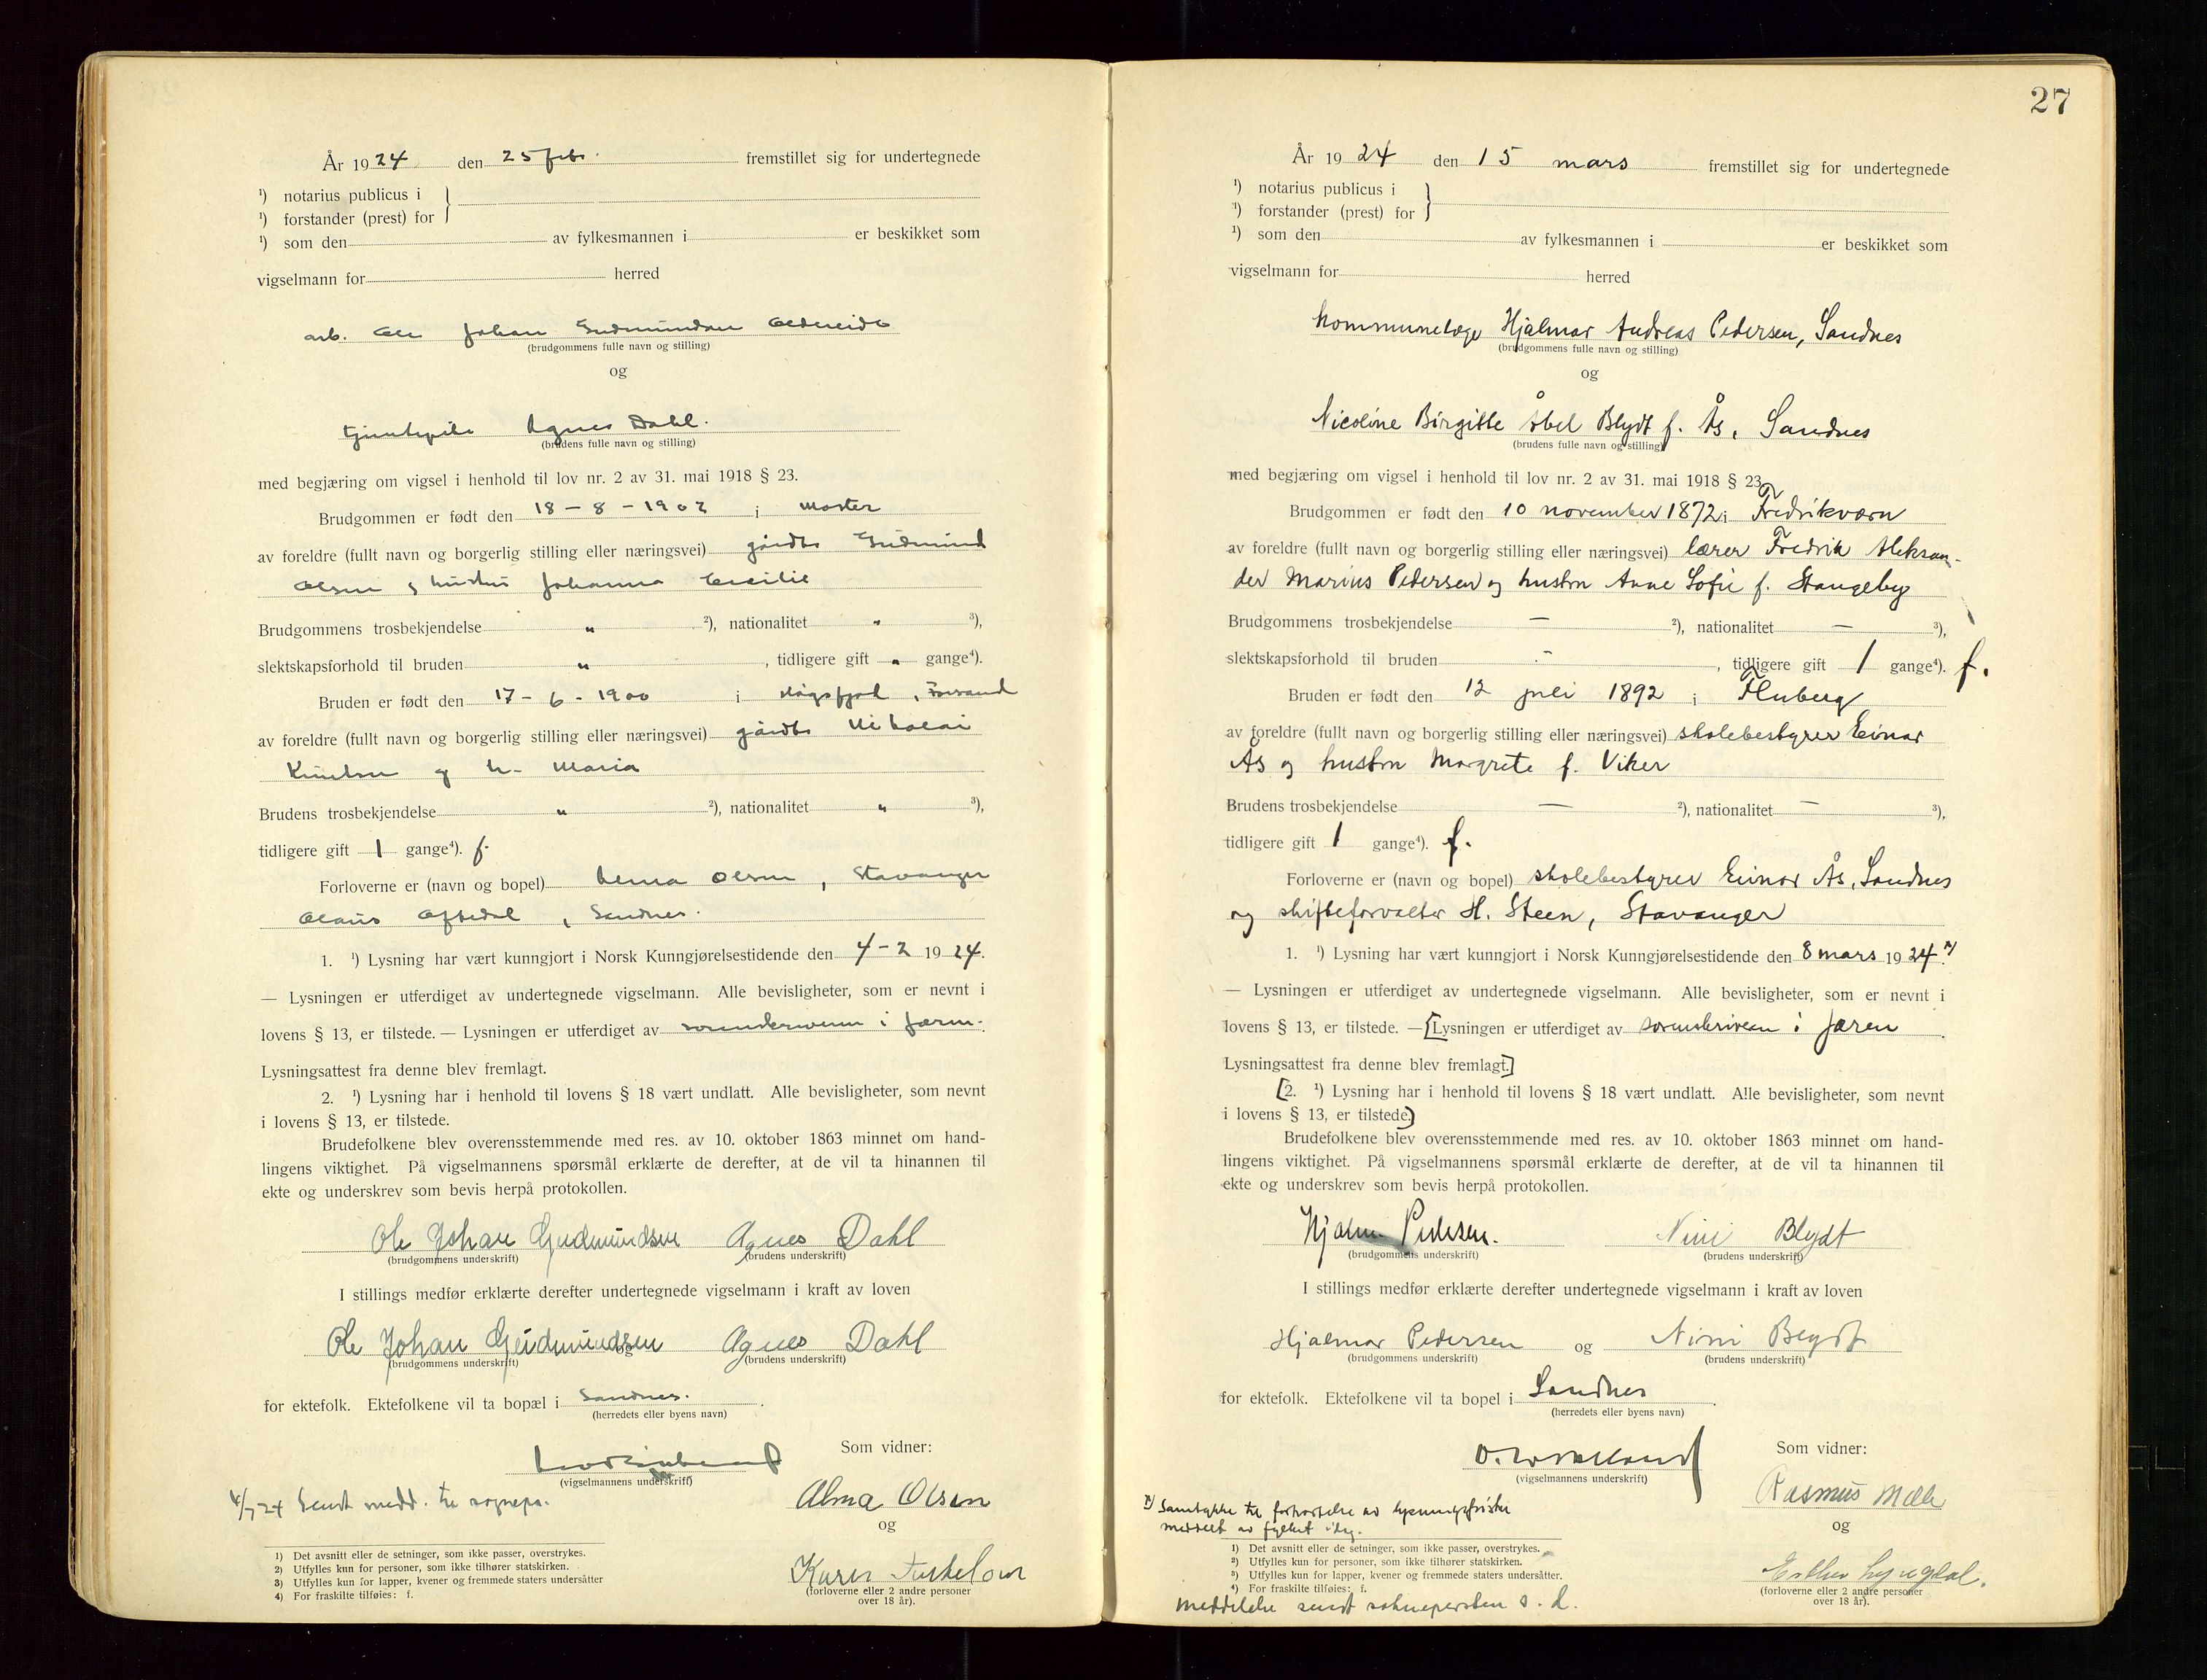 År 1924 den 25 feb. fremstillet sig for undertegnede
¹) notarius publicus i
¹) forstander (prest) for
¹) som den av fylkesmannen i er beskikket som
vigselmann for herred
arb. Ole Johan Gudmundsen
(brudgommens fulle navn og stilling)
og
Agnes Dahl.
(brudens fulle navn og stilling)
med begjæring om vigsel i henhold til lov nr. 2 av 31. mai 1918 § 23.
Brudgommen er født den 18-8-1902 i Moster
av foreldre (fullt navn og borgerlig stilling eller næringsvei) gårdbr Gudmund
Olsen og hustru Johanna Cecilie
Brudgommens trosbekjendelse " ²), nationalitet " ³),
slektskapsforhold til bruden " , tidligere gift " gange⁴).
Bruden er født den 17-6-1900 i Høgsfjord, Forsand
av foreldre (fullt navn og borgerlig stilling eller næringsvei) gårdbr Nikolai
Knutsen og h. Maria
Brudens trosbekjendelse " ²), nationalitet " ³),
tidligere gift 1 gange⁴). f.
Forloverne er (navn og bopel) Olsen, Stavanger
Olaus Aftedal, Sandnes.
1. ¹) Lysning har vært kunngjort i Norsk Kunngjørelsestidende den 4-2 1924.
— Lysningen er utferdiget av undertegnede vigselmann. Alle bevisligheter, som er nevnt i
lovens § 13, er tilstede. — Lysningen er utferdiget av sorenskriveren i Jæren.
Lysningsattest fra denne blev fremlagt.
2. ¹) Lysning har i henhold til lovens § 18 vært undlatt. Alle bevisligheter, som nevnt
i lovens § 13, er tilstede.
Brudefolkene blev overensstemmende med res. av 10. oktober 1863 minnet om hand-
lingens viktighet. På vigselmannens spørsmål erklærte de derefter, at de vil ta hinannen til
ekte og underskrev som bevis herpå protokollen.
Ole Johan Gudmundsen Agnes Dahl
(brudgommens underskrift) (brudens underskrift)
I stillings medfør erklærte derefter undertegnede vigselmann i kraft av loven
Ole Johan Gudmundsen og Agnes Dahl
(brudgommens underskrift) (brudens underskrift)
for ektefolk. Ektefolkene vil ta bopæl i Sandnes.
(herredets eller byens navn)
Som vidner:
(vigselmannens underskrift)
Sendt medd. til sognepr.
Alma Olsen
og
Karen
(forloverne eller 2 andre personer
over 18 år).
1) Det avsnitt eller de setninger, som ikke passer, overstrykes.
2) Utfylles kun for personer, som ikke tilhører statskirken.
3) Utfylles kun for lapper, kvener og fremmede staters undersåtter
4) For fraskilte tilføies: f.
27
År 1924 den 15 mars fremstillet sig for undertegnede
¹) notarius publicus i
¹) forstander (prest) for
¹) som den av fylkesmannen i er beskikket som
vigselmann for herred
Kommunelæge Hjalmar Andreas Pedersen, Sandnes
(brudgommens fulle navn og stilling)
og
Nicoline Birgitte Abel Blydt f. Ås, Sandnes
(brudens fulle navn og stilling)
med begjæring om vigsel i henhold til lov nr. 2 av 31. mai 1918 § 23.
Brudgommen er født den 10 november 1872 i Fredriksværn
av foreldre (fullt navn og borgerlig stilling eller næringsvei) lærer Fredrik Aleksan-
der Marius Pedersen og hustru Anne Sofie f. Stangeby
Brudgommens trosbekjendelse — ²), nationalitet — ³),
slektskapsforhold til bruden - , tidligere gift 1 gange⁴). f.
Bruden er født den 12 juli 1892 i Fluberg
av foreldre (fullt navn og borgerlig stilling eller næringsvei) skolebestyrer Einar
Ås og hustru Margrete f. Viker
Brudens trosbekjendelse — ²), nationalitet — ³),
tidligere gift 1 gange⁴). f.
Forloverne er (navn og bopel) skolebestyrer Einar Ås, Sandnes
og skifteforvalter H. Steen, Stavanger
1. ¹) Lysning har vært kunngjort i Norsk Kunngjørelsestidende den 8 mars 1924.
— Lysningen er utferdiget av undertegnede vigselmann. Alle bevisligheter, som er nevnt i
lovens § 13, er tilstede. — [Lysningen er utferdiget av sorenskriveren i Jæren
Lysningsattest fra denne blev fremlagt.]
[2. ¹) Lysning har i henhold til lovens § 18 vært undlatt. Alle bevisligheter, som nevnt
i lovens § 13, er tilstede.]
Brudefolkene blev overensstemmende med res. av 10. oktober 1863 minnet om hand-
lingens viktighet. På vigselmannens spørsmål erklærte de derefter, at de vil ta hinannen til
ekte og underskrev som bevis herpå protokollen.
Hjalmar Pedersen. Nini Blydt
(brudgommens underskrift) (brudens underskrift)
I stillings medfør erklærte derefter undertegnede vigselmann i kraft av loven
Hjalmar Pedersen og Nini Blydt
(brudgommens underskrift) (brudens underskrift)
for ektefolk. Ektefolkene vil ta bopel i Sandnes
(herredets eller byens navn)
Som vidner:
(vigselmannens underskrift)
Rasmus Mæle
og
Esther Lyngdal.
(forloverne eller 2 andre personer
over 18 år).
Samtykke til forkortelse av lysningsfristen
meddelt av fylket idag.
1) Det avsnitt eller de setninger, som ikke passer, overstrykes.
2) Utfylles kun for personer, som ikke tilhører statskirken.
3) Utfylles kun for lapper, kvener og fremmede staters undersåtter.
4) For fraskilte tilføies: f.
Meddelelse sendt sokneprsten s. d.